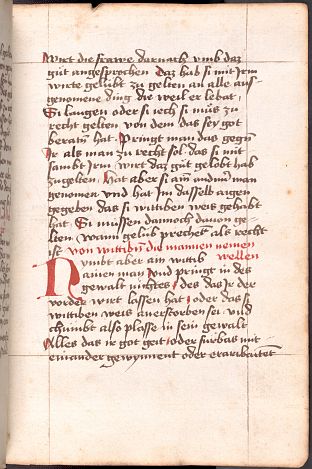 Wirt die frawe darnach umb daz
gůt angesprochen daz hab si mit irm
wirte gelubt zu gelten an alle auf
genomene ding die weil er lebat
Si laugen oder si iech si můs zu
recht gelten von dem das sey got
beratn hat Pringt man das gegn
Ir als man zu recht sol das si mit
sambt Irm wirt daz gůt gelobt hab
zugelten hat aber si ain andrnn man
genomen und hat Im dasselb aigen
gegeben das si wittiben weis gehabt
hat Si mussen dannoch davon ge-
lten wann gelub prechet als recht
ist von wittibn die mannen nemen
Nymbt aber ain wittib wellen
ainen man Und pringt in des
gewalt nichtes des das Ir der
vorder wirt lassen hat oder das si
wittiben weis auerstorben sei und
chumbt also plosse in sein gewalt
Alles das ir got geit oder furbas mit
einander gewynnent oder erarbaitent